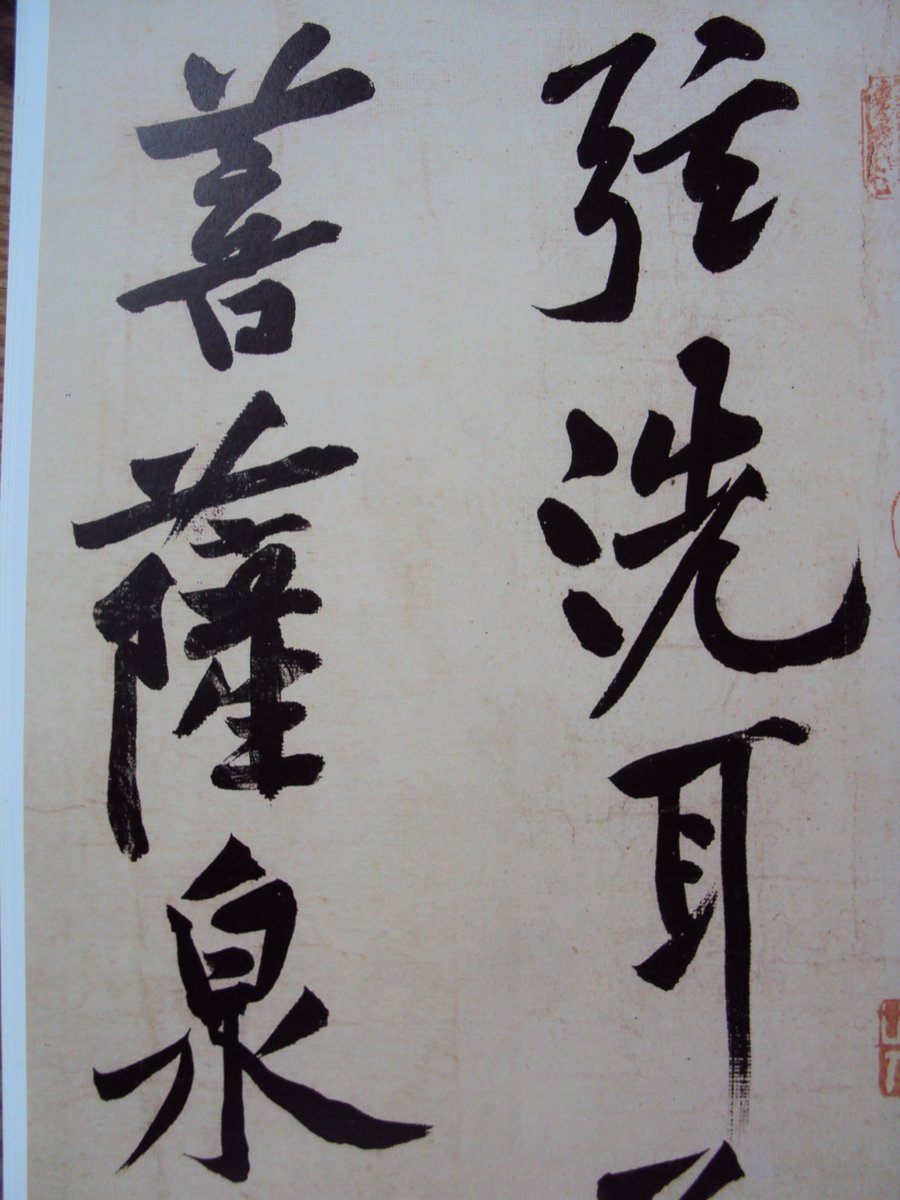 弦洗耳
菩薩泉